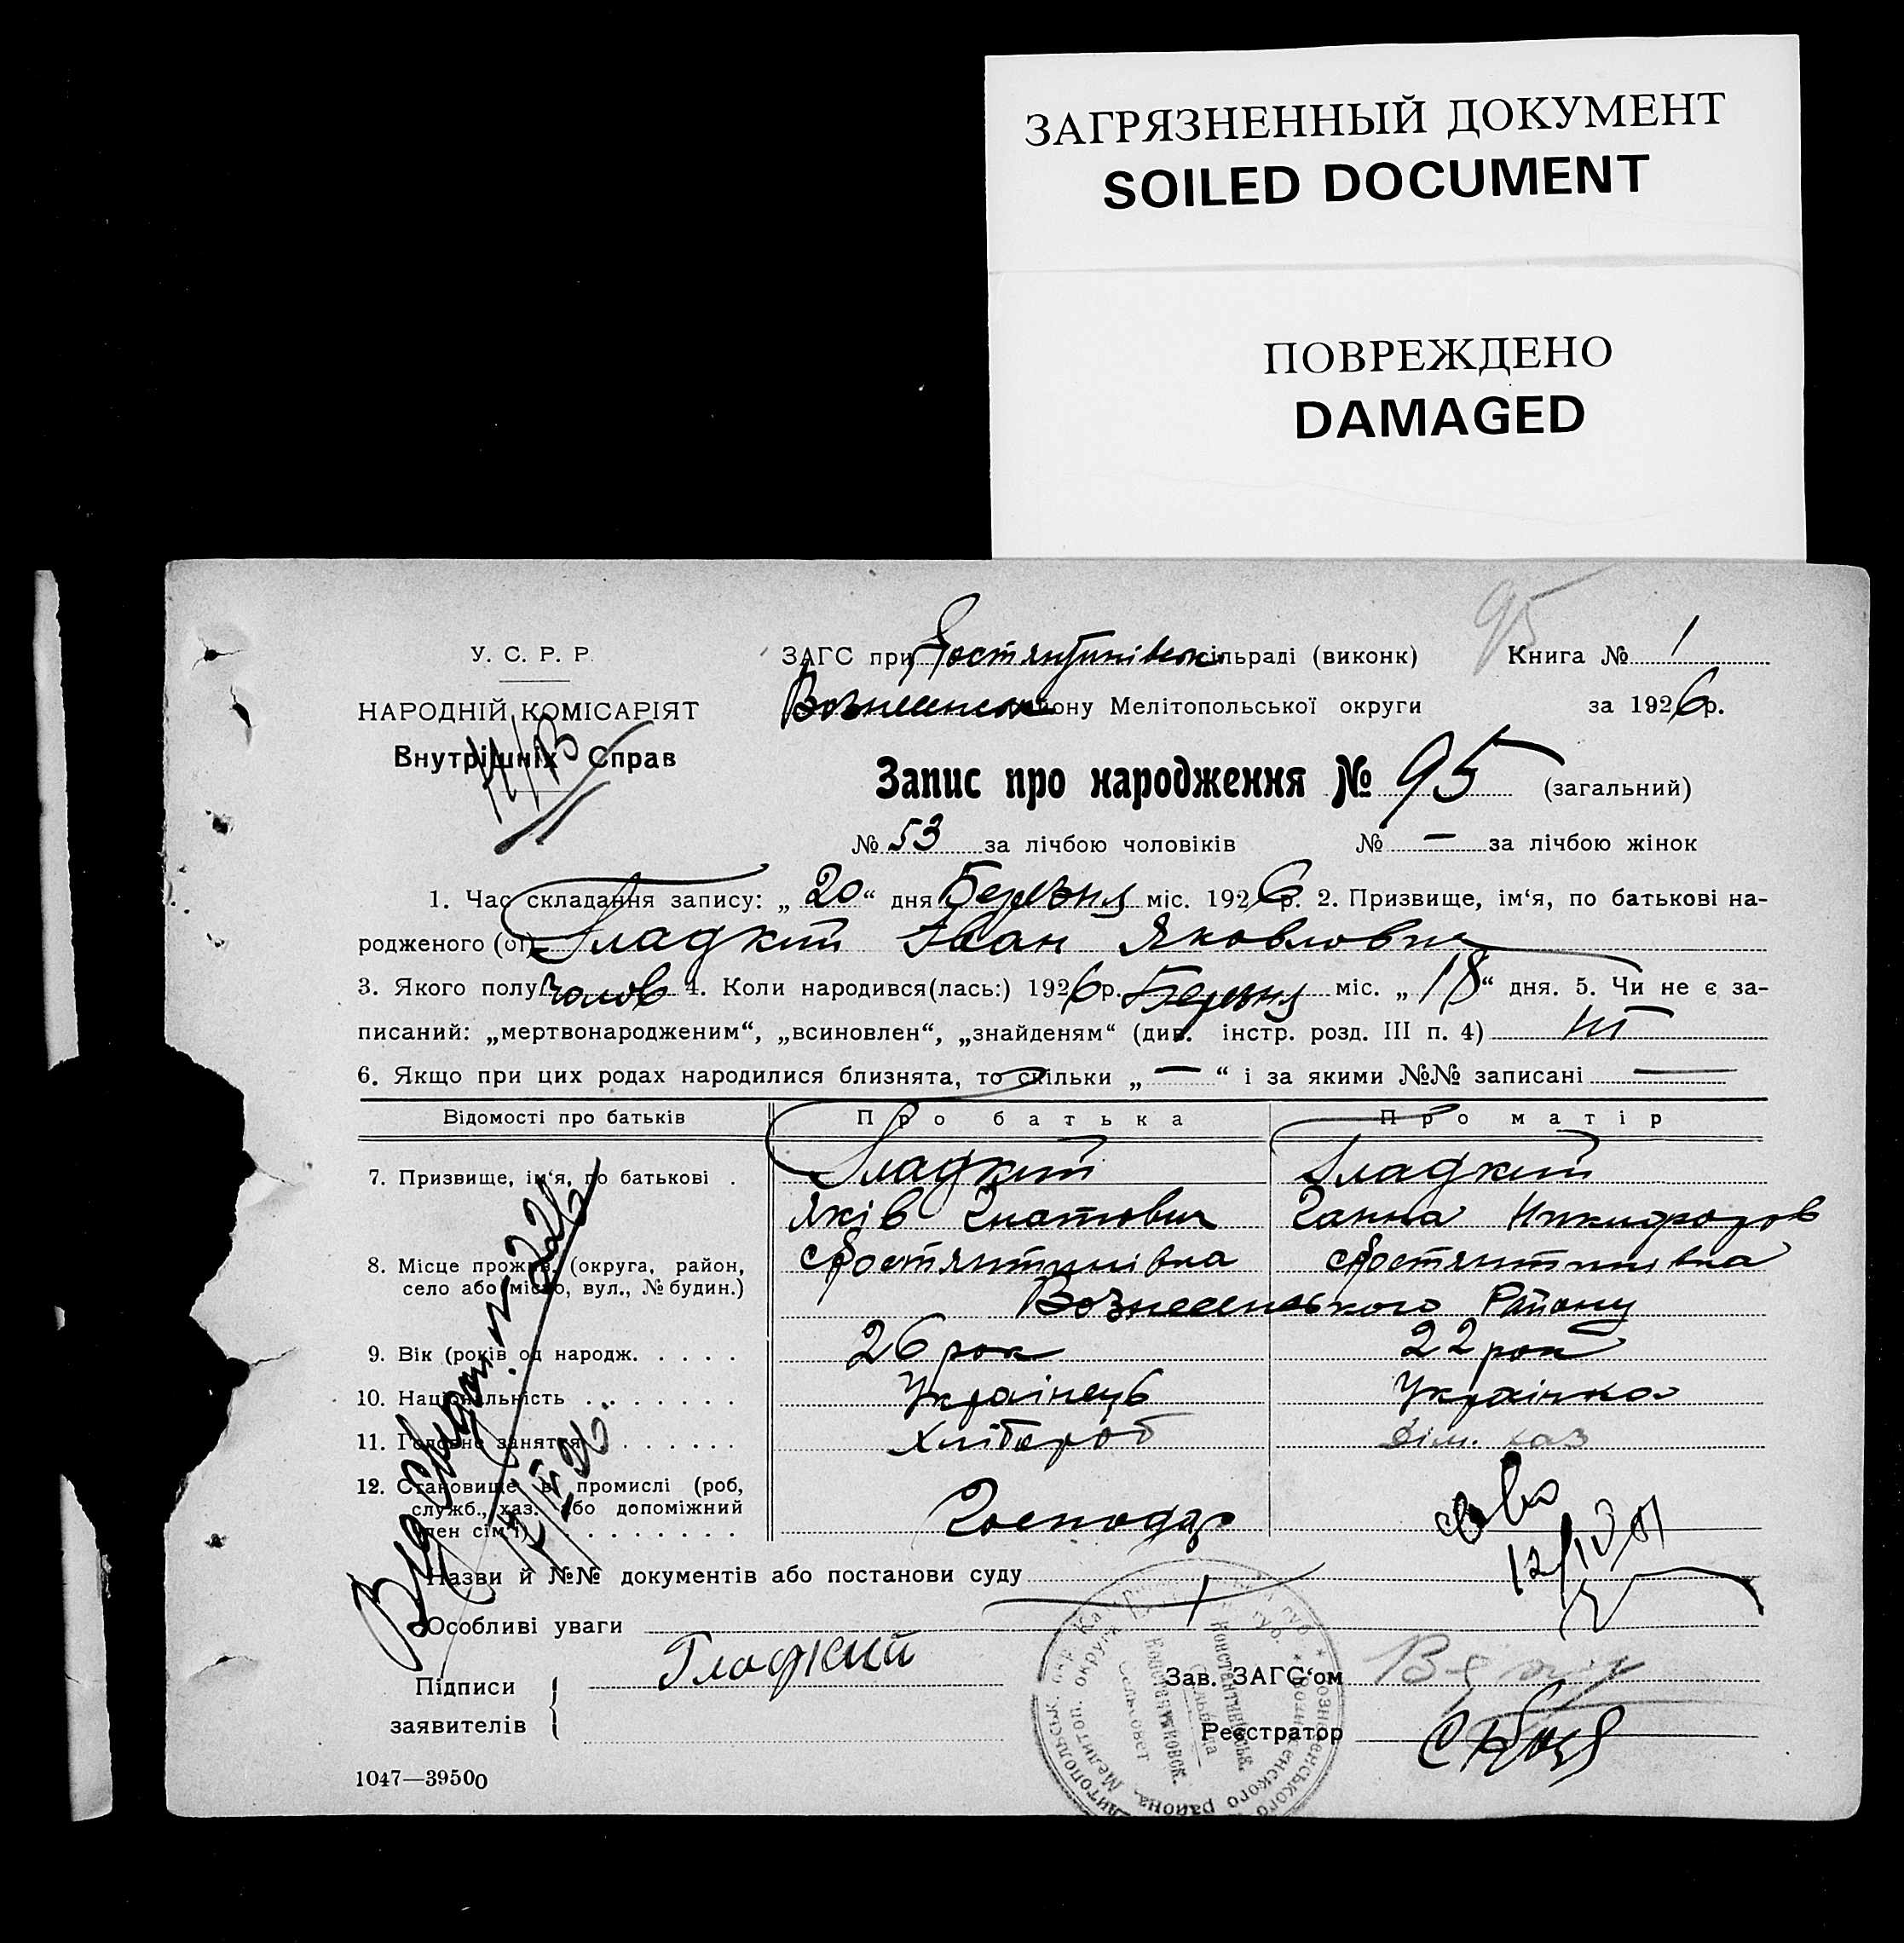 ЗАГРЯЗНЕННЫЙ ДОКУМЕНТ
SOILED DOCUMENT
ПОВРЕЖДЕНО
DAMAGED
95
У. С. Р. Р.
НАРОДНІЙ КОМІСАРІЯТ
Внутрішніх Справ
ЗАГС при Костянтинівск сільраді (виконк) Книга № 1
Вознесенск району Мелітопольської округи за 1926 р.
Запис про народження № 95 (загальний)
№ 53 за лічбою чоловіків № — за лічбою жінок
1. Час складання запису: „ 20 “ дня Березня міс. 1926 р. 2. Призвище, ім‘я, по батькові на-
родженого (ої) Гладкий Іван Яковлович
3. Якого полу чолов 4. Коли народився(лась:) 1926 р. Березня міс. „ 18 “ дня. 5. Чи не є за-
писаний: „мертвонародженим“, „всиновлен“, „знайденям“ (див. інстр. розд. III п. 4) ні
6. Якщо при цих родах народилися близнята, то скільки „ — “ і за якими №№ записані —
Відомості про батьків Про батька Про матір
7. Призвище, ім‘я, по батькові . Гладкий Гладкий
Яків Гнатович Ганна Никифоров
8. Місце прожив. (округа, район, с Костянтинівка с Костянтинівка
село або місто, вул., № будин.) Вознесенського Району
9. Вік (років од народж. . . . . 26 рок 22 рок
10. Національність . . . . . . . Українець Українка
11. Головне заняття . . . . . . Хлібороб Дім. хаз
12. Становище в промислі (роб,
служб., хаз. або допоміжний
член сім‘ї) . . . . . . . . . Господар
12/IV
Назви й №№ документів або постанови суду
Особливі уваги
Підписи
заявителів
Гладкий
Зав. ЗАГС‘ом
Реєстратор
1047—39500